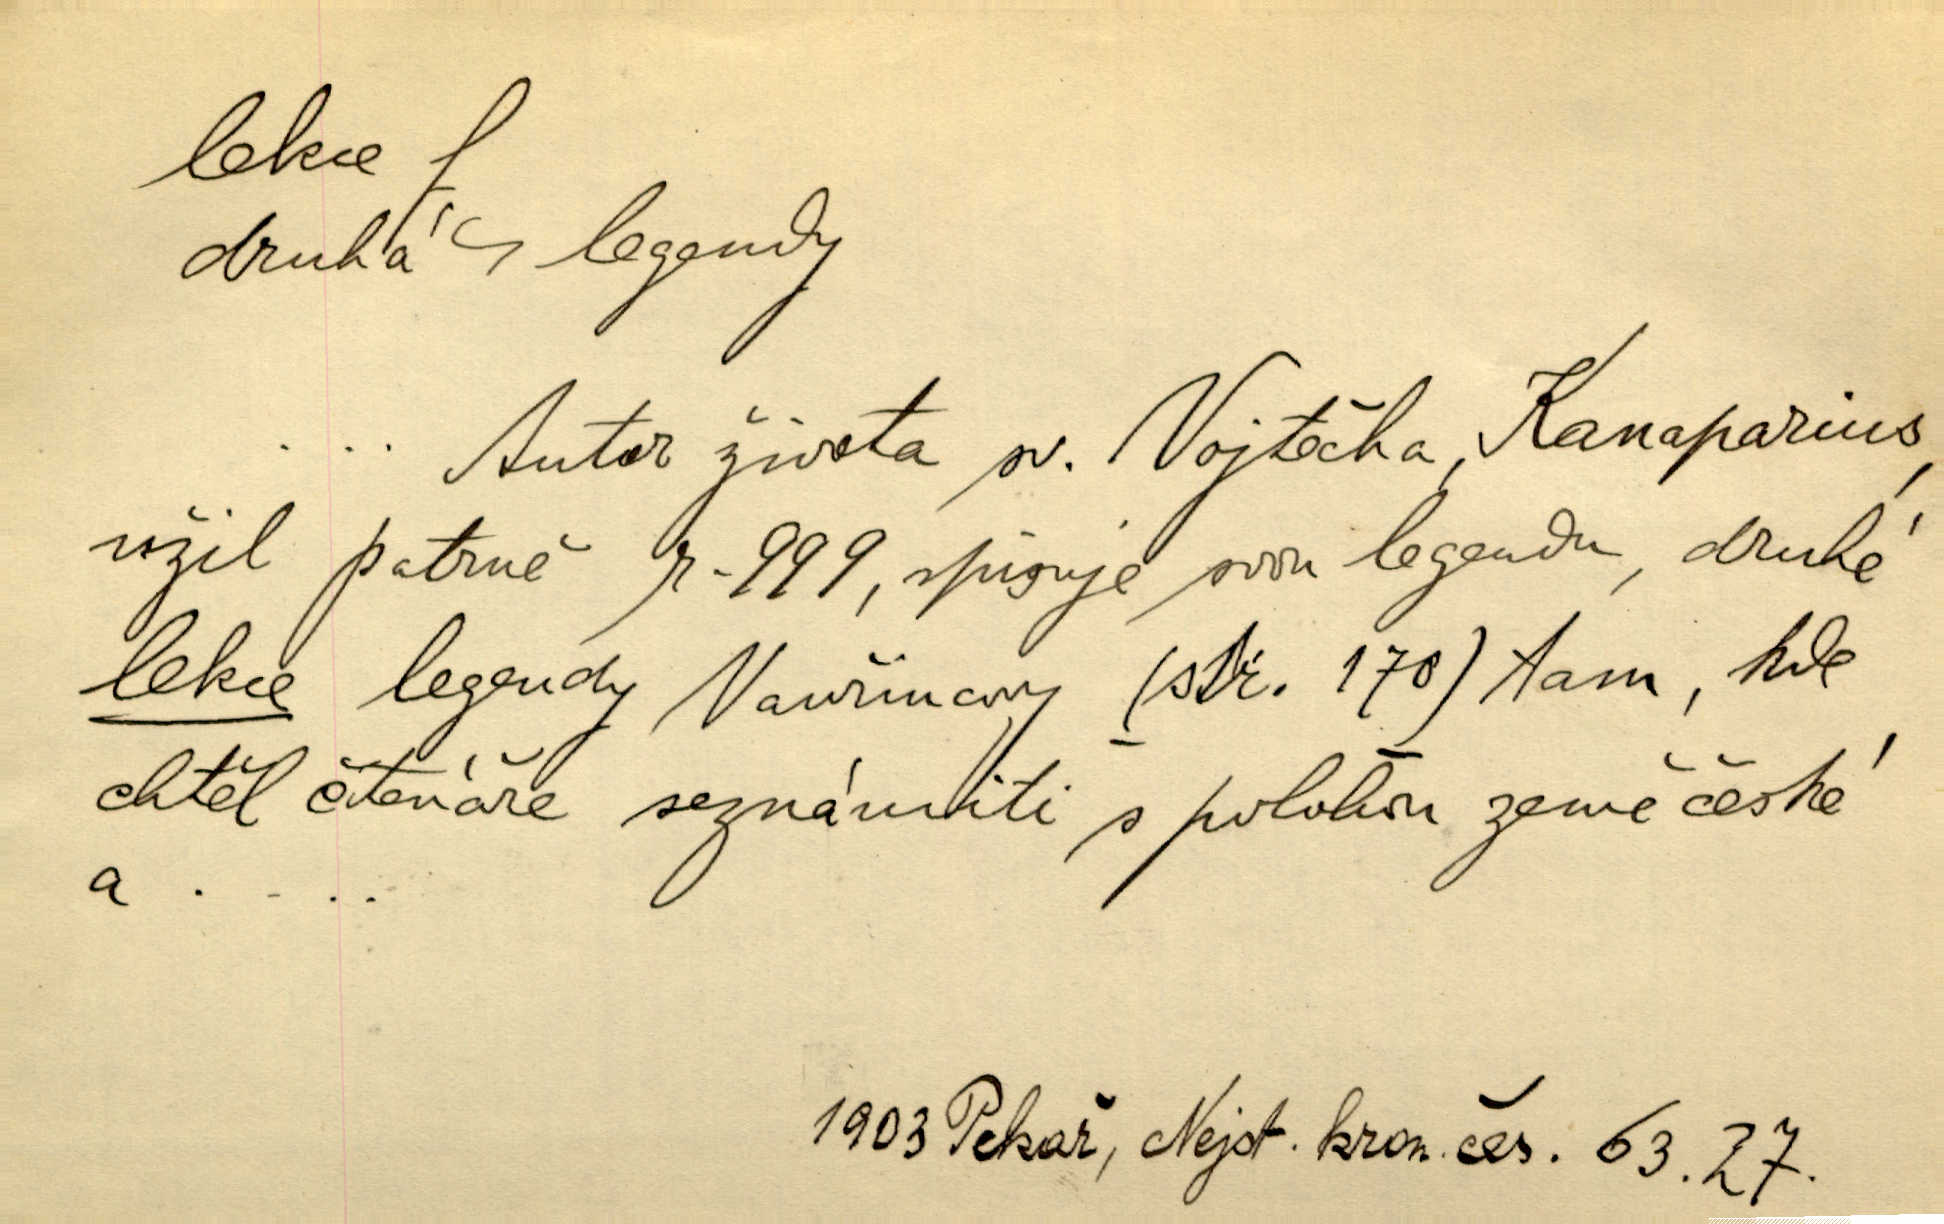 lekce f
druhá ~ legendy
. . . Autor života sv. Vojtěcha, Kanaparius,
užil patrně r. 999, spisuje svou legendu, druhé
lekce legendy Vavřincovy (str. 178) tam, kde
chtěl čtenáře seznámiti s polohou země české
a . . . .
1903 Pekař, Nejst. kron. čes. 63. 27.